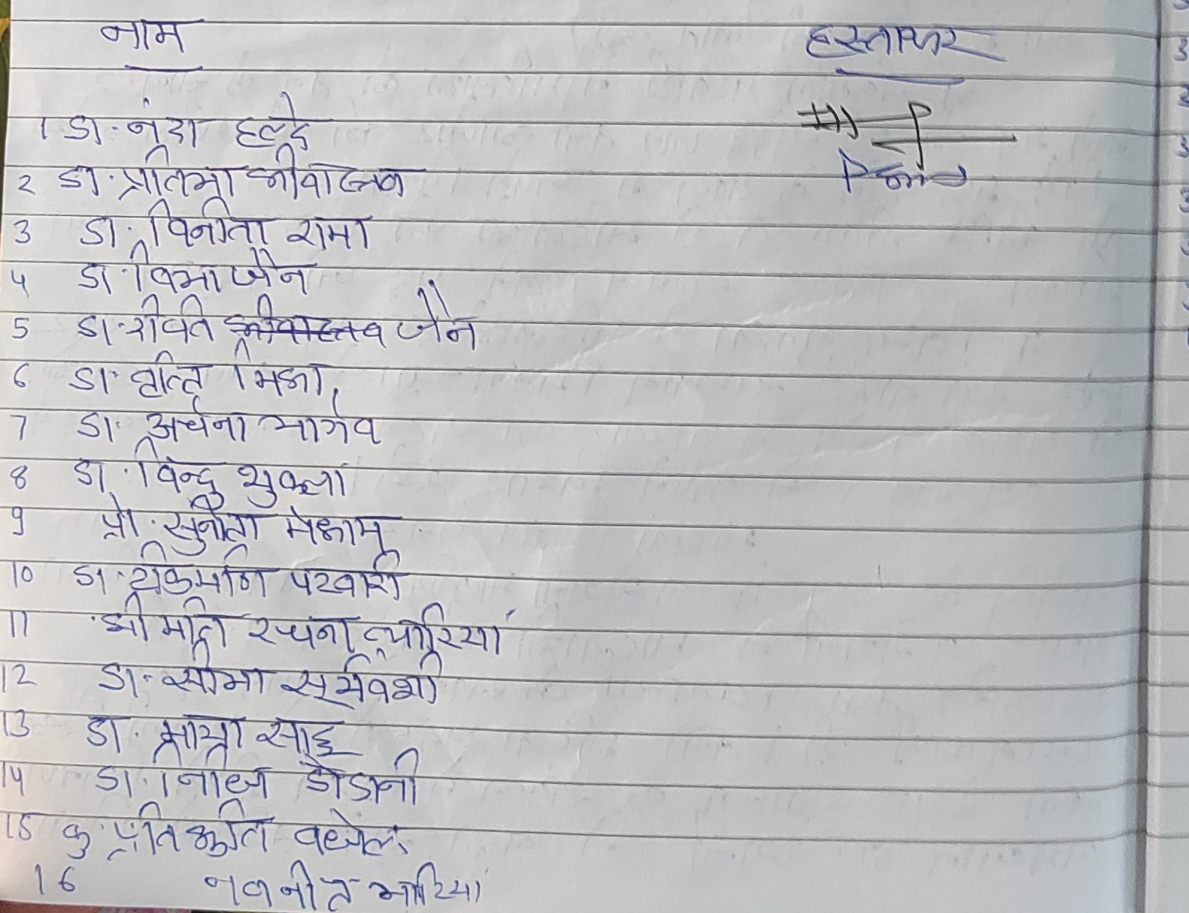 नाम हस्ताक्षर
1 डा. नंदा हल्दे
2 डा. प्रतिमा श्रीवास्तव
3 डा. विनीता रामा
4 डा. विभा जैन
5 डा. रीवति श्रीवास्तव जैन
6 डा. मिश्रा
7 डा. अर्चना भार्गव
8 डा. विन्दु शुक्ला
9 प्रो. सुनीता मेश्राम
10 डा. रुकमणि पटवारी
11 श्रीमति रचना
12 डा. सीमा सूर्यवंशी
13 डा. साहू
14 डा. निधि डोडानी
15 कु. प्रतिकृति वघेल
16 नवनीत भाटिया